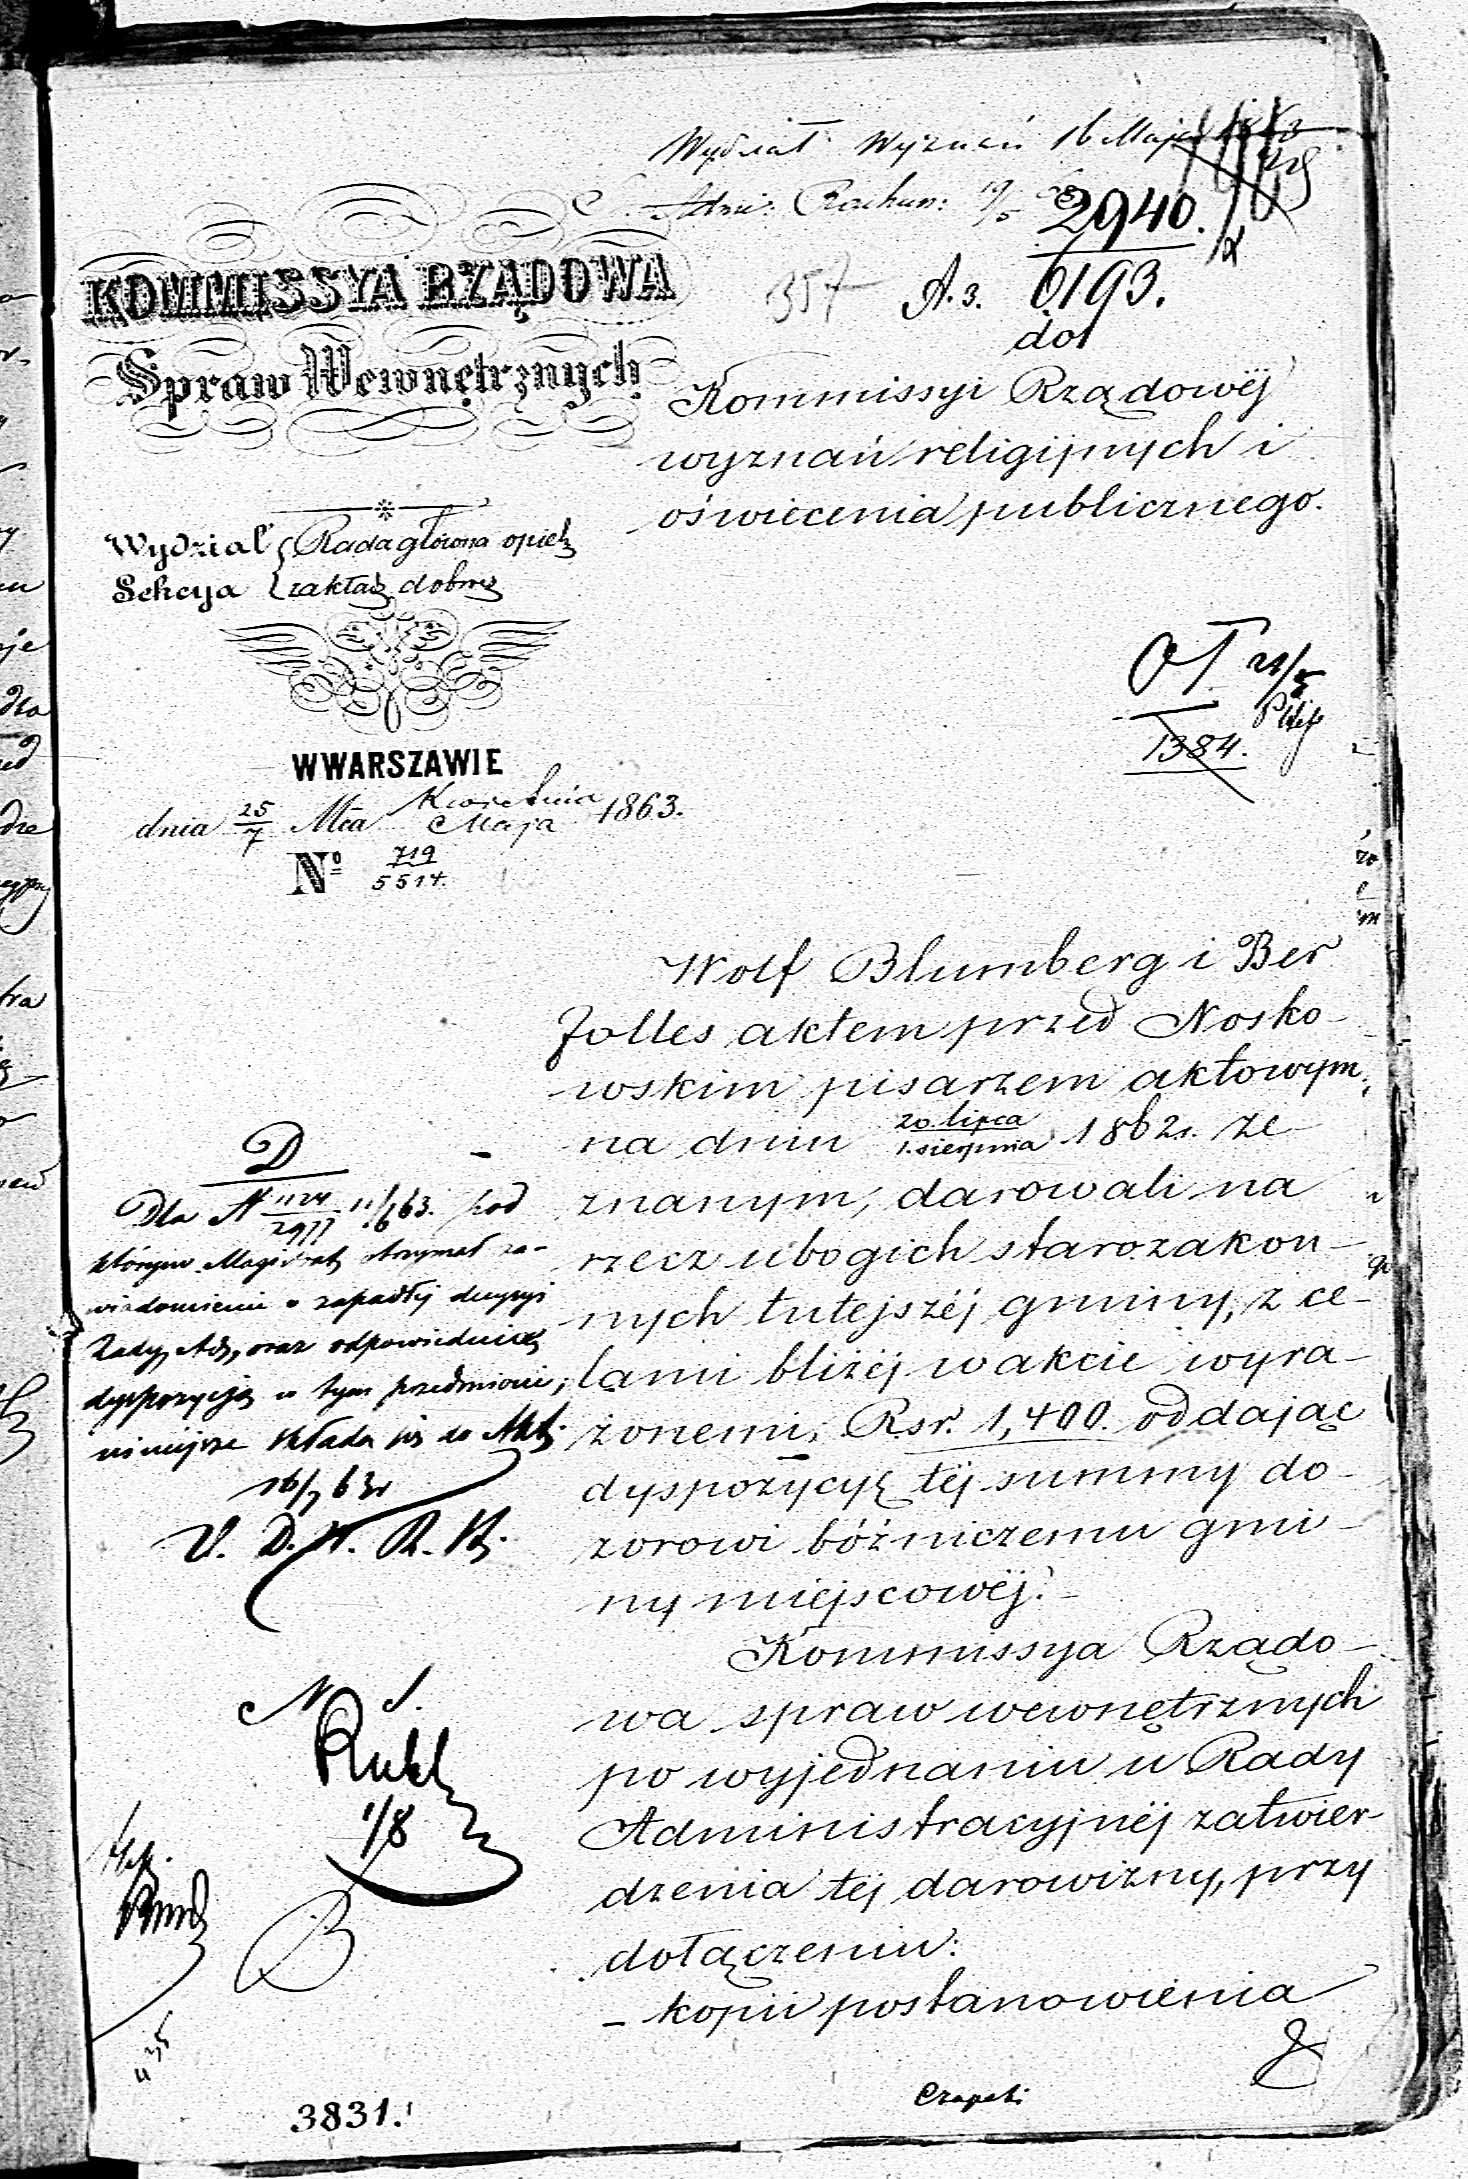 Wydział Wyznań 16 Maja
Rachun: 19/5
2940.
357 A. 3. 6193.
do
KOMMISSYA RZĄDOWA
Spraw Wewnętrznych
Kommissyi Rządowéj
wyznań religijnych i
oświecenia publicznego.
Wydział Rada główna opiek
Sekcya zakład dobro
W WARSZAWIE
dnia 25/7 Mca Kwietnia/Maja 1863.
Nº 719/5514.
21/5
1384.
Wolf Blumberg i Ber
Jolles aktem przed Nosko-
wskim pisarzem aktowym
na dniu 20. lipca/1. sierpnia 1862 r. ze-
znanym, darowali na
rzecz ubogich starozakon-
nych tutejszéj gminy, z ce-
lami bliżéj w akcie wyra-
żonemi, Rsr. 1,400. oddając
dyspozycyę téj summy do-
zorowi bóżniczemu gmi-
ny miejscowéj.
Kommissya Rządo-
wa spraw wewnętrznych
po wyjednaniu u Rady
Administracyjnéj zatwier-
dzenia téj darowizny, przy
dołączeniu:
- kopii postanowienia
D
Dla N 1124/2977 11/6 63. pod
którym Magistrat otrzymał za-
wiadomienie o zapadłéj decyzyi
Rady Ad, oraz odpowiednią
dyspozycją w tym przedmiocie,
niniejsze składa się do Akt.
16/7 63 r
V. D. R.
N S.
1/8
3831.